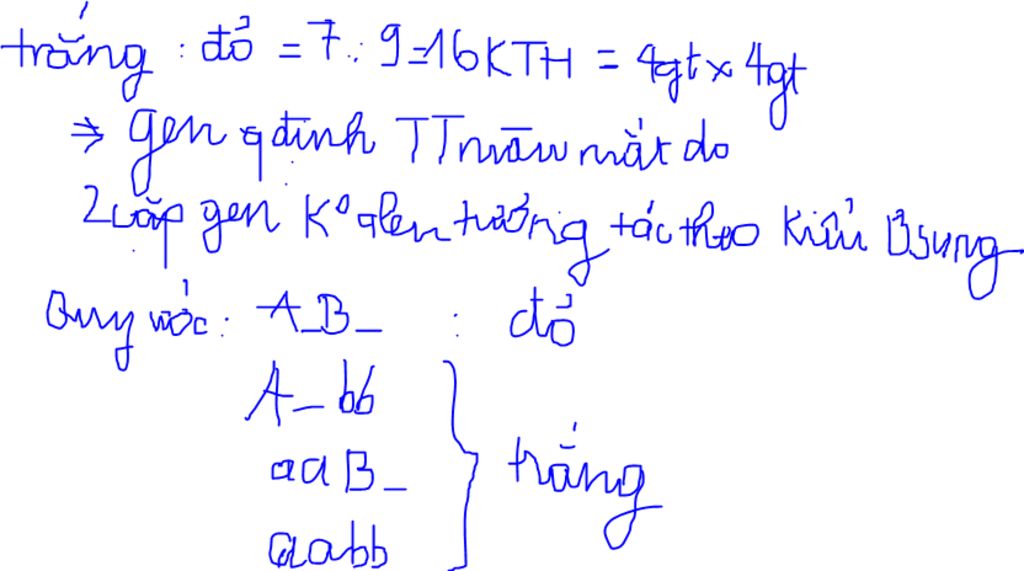 trắng : đỏ = 7 : 9 = 16 KTH = 4gt x 4gt
⇒ gen qđịnh TT màu mắt do
2 cặp gen K° alen tương tác theo kiểu Bsung
Quy ước : A_B_ : đỏ
A_bb
aaB_ } trắng
aabb